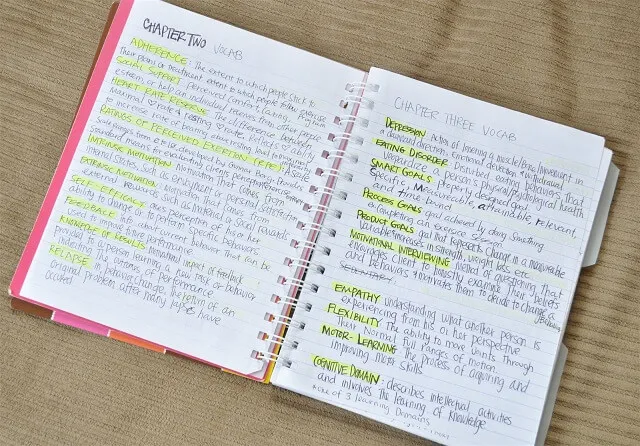 CHAPTER TWO VOCAB
ADHERENCE: The extent to which people stick to
their plans or treatment
SOCIAL SUPPORT: perceived comfort, caring,
esteem, or help an individual receives from other people
HEART RATE RESERVE: The difference between
maximal ♡ rate & resting ♡ rate
RATINGS OF PERCEIVED EXERTION (RPE): A scale
Standard means for evaluating
INTRINSIC MOTIVATION: Motivation That comes from
internal states, such as enjoyment or personal satisfaction
EXTRINSIC MOTIVATION: motivation That comes from
external rewards, such as material or social rewards
SELF-EFFICACY: The perception of one's
ability to change or to perform specific behaviors
FEEDBACK: info about current behavior that can be
used to improve future performance
KNOWLEDGE OF RESULTS: motivational impact of feedback
provided to a person learning a new task or behavior
indicating The outcomes of performance
RELAPSE: in behavior change, the return of an
original problem after many lapses have
occurred
CHAPTER THREE VOCAB
DEPRESSION: Action of
a downward direction, emotional dejection & withdrawal
EATING DISORDER: Disturbed eating behaviors that
jeopardize a person's physical/psychological health
SMART GOALS: properly designed goal
Specific, Measureable, attainable, relevant
and time bound
PROCESS GOALS: goal achieved by doing something
ex) completing an exercise session
PRODUCT GOALS: goal that represent change in a measureable
variable, increases in strength, weight loss, etc
MOTIVATIONAL INTERVIEWING: method of questioning that
encourages clients to honestly examine their beliefs
and behaviors & motivates them to decide to change a
behavior
EMPATHY: understanding what another person is
experiencing from his or her perspective
FLEXIBILITY: The ability to move joints Through
their Normal full ranges of motion.
MOTOR-LEARNING: The process of acquiring and
improving motor skills
COGNITIVE DOMAIN: describes intellectual activities
and involves the learning of knowledge
* one of 3 learning Domains